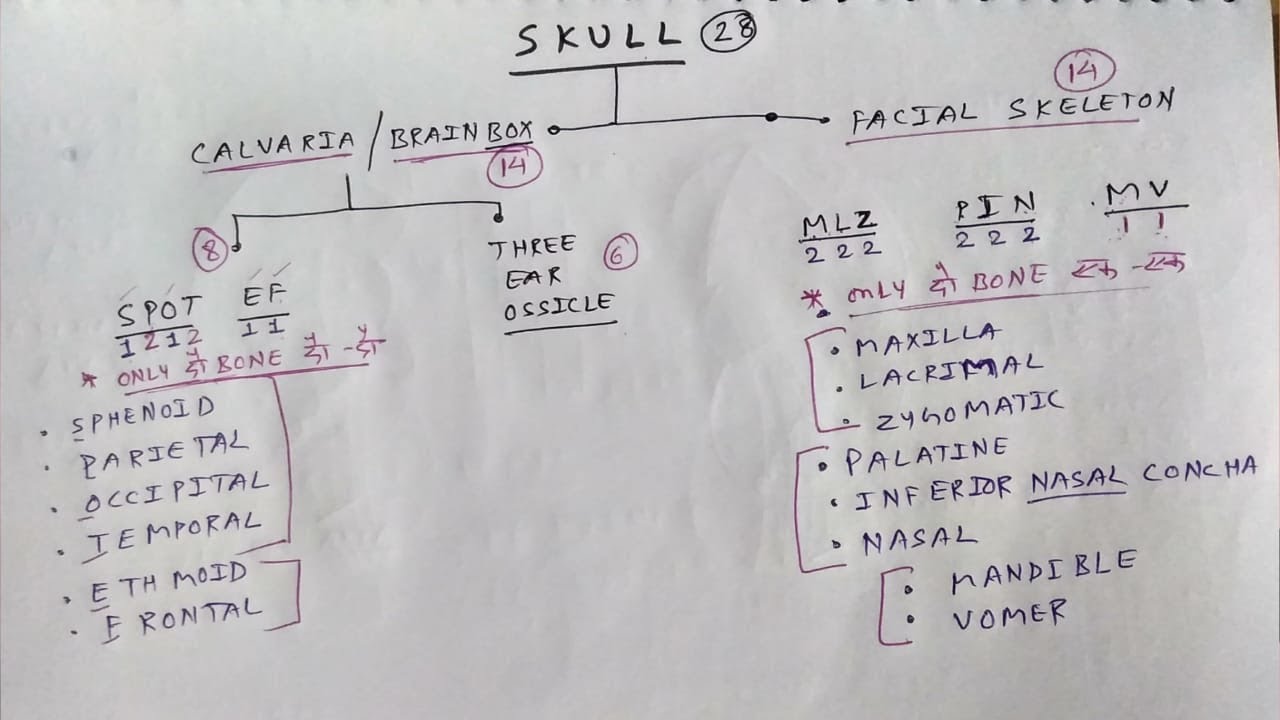 SKULL 28
CALVARIA / BRAINBOX
14
FACIAL SKELETON
14
8
THREE
EAR
OSSICLE
6
SPOT EF
1 2 1 2 1 1
* ONLY दो BONE दो-दो
• SPHENOID
• PARIETAL
• OCCIPITAL
• TEMPORAL
• ETHMOID
• FRONTAL
MLZ PIN MV
2 2 2 2 2 2 1 1
* ONLY दो BONE एक-एक
• MAXILLA
• LACRIMAL
• ZYGOMATIC
• PALATINE
• INFERIOR NASAL CONCHA
• NASAL
• MANDIBLE
• VOMER